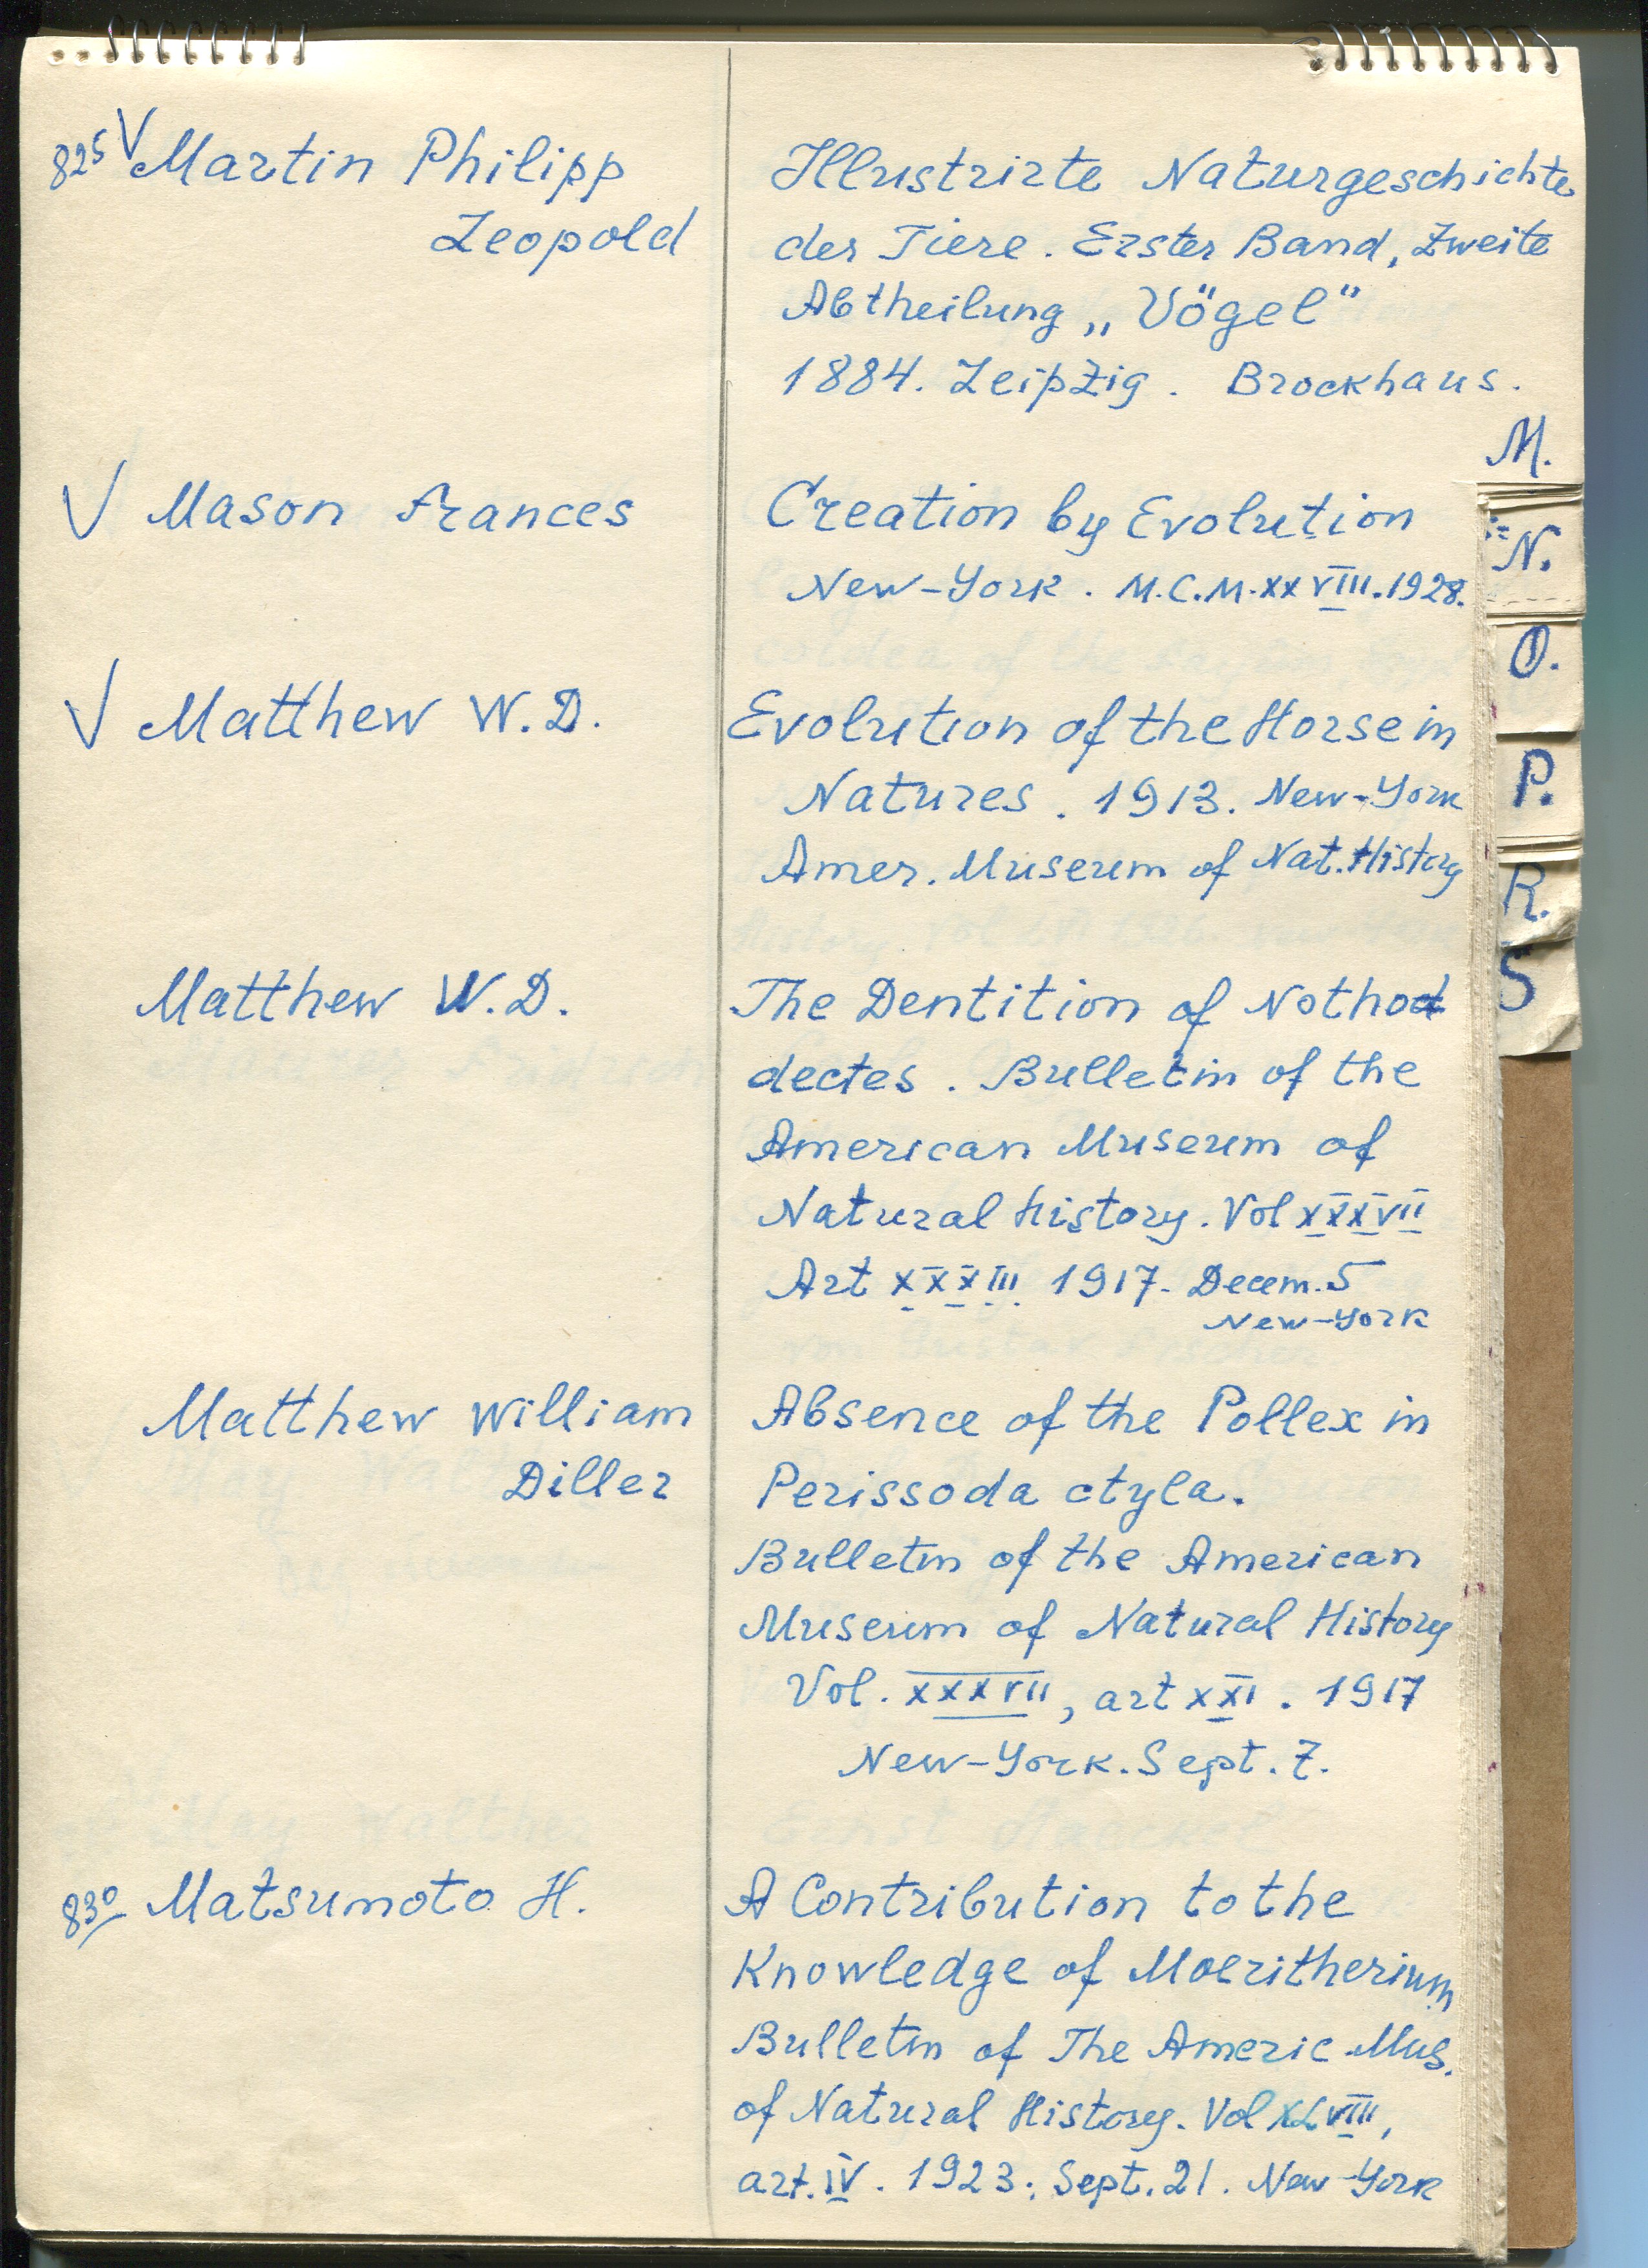 825 V Martin Philipp
Leopold
Illustrirte Naturgeschichte
der Tiere. Erster Band, Zweite
Abtheilung „Vögel"
1884. Leipzig. Brockhaus.
V Mason Frances
Creation by Evolution
New-York. M.C.M.XXVIII.1928.
V Matthew W.D.
Evolution of the Horse in
Natures. 1913. New-York
Amer. Museum of Nat. History
Matthew W.D.
The Dentition of Nothod
dectes. Bulletin of the
American Museum of
Natural History. Vol XXXVII
Art XXXIII 1917. Decem. 5
New-York
Matthew William
Diller
Absence of the Pollex in
Perissoda ctyla.
Bulletin of the American
Museum of Natural History
Vol. XXXVII, art XXI. 1917
New-York. Sept. 7.
830 Matsumoto H.
A Contribution to the
Knowledge of Moeritherium
Bulletin of The Americ Mus.
of Natural History. Vol XLVIII,
art. IV. 1923; Sept. 21. New York
M.
N.
O.
P.
R.
S